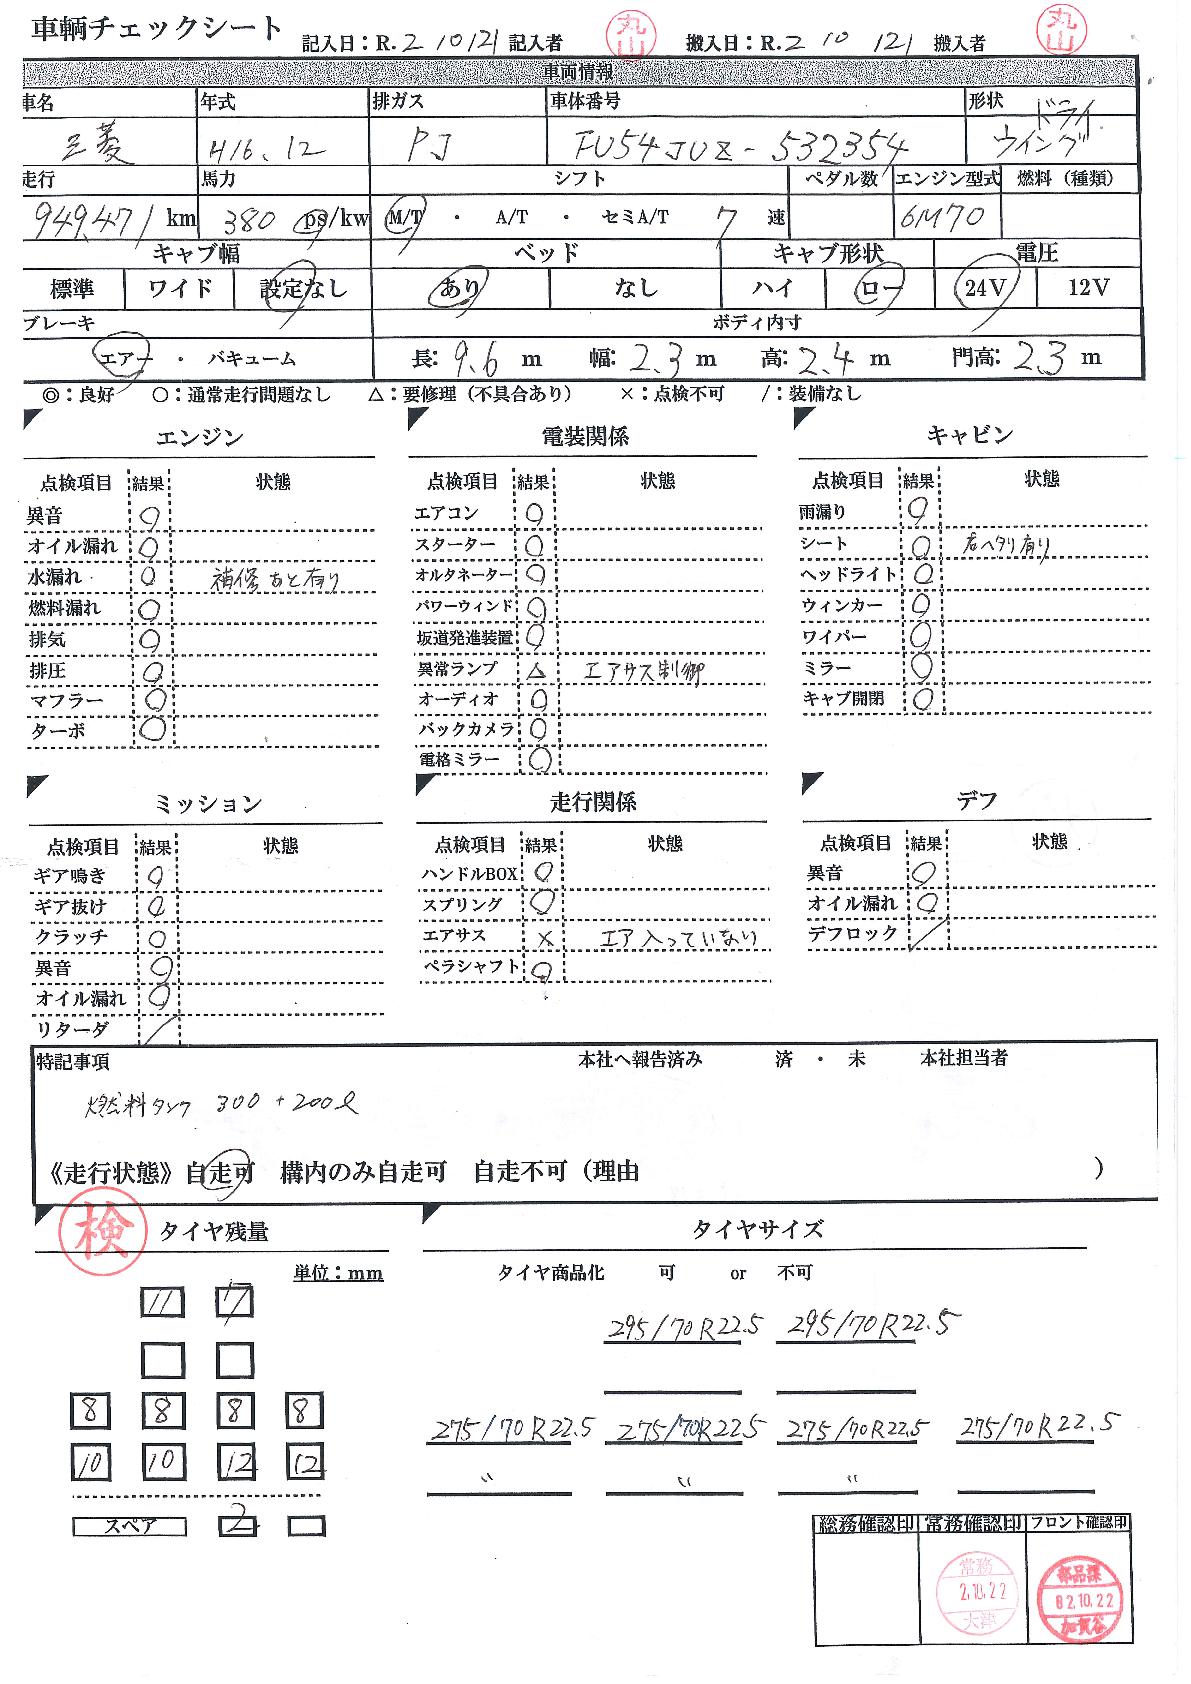 車輌チェックシート 記入日：R.2 10 121 記入者 丸山 搬入日：R.2 10 121 搬入者 丸山
車両情報
車名 年式 排ガス 車体番号 形状 ドライ
三菱 H16.12 PJ FU54JUZ-532354 ウイング
走行 馬力 シフト ペダル数 エンジン型式 燃料（種類）
949,471 km 380 ps/kw M/T ・ A/T ・ セミA/T 7 速 6M70
キャブ幅 ベッド キャブ形状 電圧
標準 ワイド 設定なし あり なし ハイ ロー 24V 12V
ブレーキ ボディ内寸
エアー ・ バキューム 長: 9.6 m 幅: 2.3 m 高: 2.4 m 門高: 2.3 m
◎：良好 ○：通常走行問題なし △：要修理（不具合あり） ×：点検不可 /：装備なし
エンジン 電装関係 キャビン
点検項目 結果 状態 点検項目 結果 状態 点検項目 結果 状態
異音 ○ エアコン ○ 雨漏り ○
オイル漏れ ○ スターター ○ シート ○ 右ヘタリ有り
水漏れ ○ 補修あと有り オルタネーター ○ ヘッドライト ○
燃料漏れ ○ パワーウィンド ○ ウィンカー ○
排気 ○ 坂道発進装置 ○ ワイパー ○
排圧 ○ 異常ランプ △ エアサス制御 ミラー ○
マフラー ○ オーディオ ○ キャブ開閉 ○
ターボ ○ バックカメラ ○
電格ミラー ○
ミッション 走行関係 デフ
点検項目 結果 状態 点検項目 結果 状態 点検項目 結果 状態
ギア鳴き ○ ハンドルBOX ○ 異音 ○
ギア抜け ○ スプリング ○ オイル漏れ ○
クラッチ ○ エアサス × エア入っていない デフロック /
異音 ○ ペラシャフト ○
オイル漏れ ○
リターダ /
特記事項 本社へ報告済み 済 ・ 未 本社担当者
燃料タンク 300 + 200ℓ
《走行状態》自走可 構内のみ自走可 自走不可（理由 ）
検 タイヤ残量 タイヤサイズ
単位：mm タイヤ商品化 可 or 不可
11 7 295/70R22.5 295/70R22.5
8 8 8 8 275/70R22.5 275/70R22.5 275/70R22.5 275/70R22.5
10 10 12 12 〃 〃 〃
スペア 2
総務確認印 常務確認印 フロント確認印
常務 2.10.22 大津 部品課 02.10.22 加賀谷